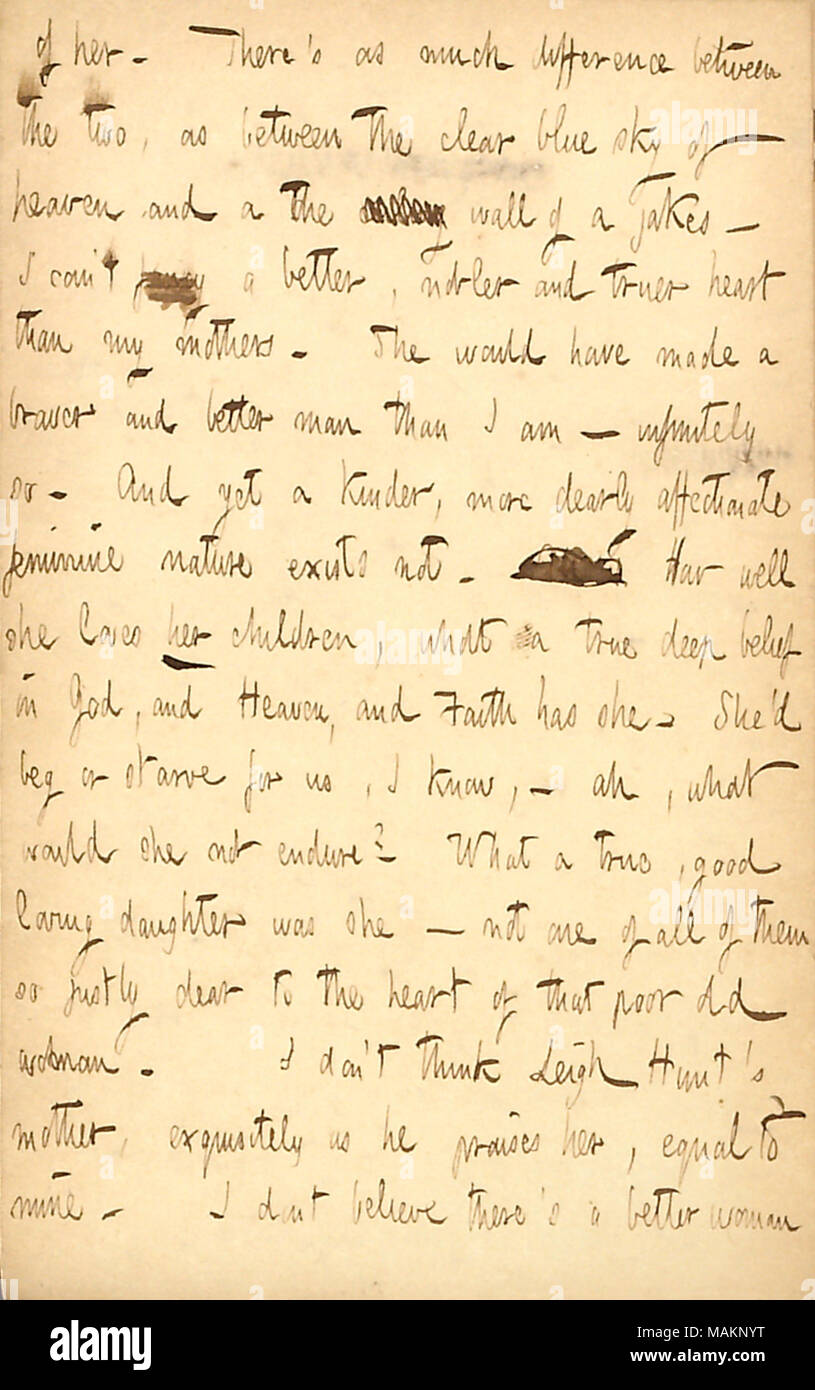 of her. There's as much difference between
the two, as between the clear blue sky of
heaven and a the wall of a jakes —
I can't fancy a better, nobler and truer heart
than my mothers. She would have made a
braver and better man than I am — infinitely
so. And yet a kinder, more dearly affectionate
feminine nature exists not. How well
she loves her children, what a true deep belief
in God, and Heaven, and Faith has she. She'd
beg or starve for us, I know, — ah, what
would she not endure? What a true, good
loving daughter was she — not one of all of them
so justly dear to the heart of that poor old
woman. I don't think Leigh Hunt's
mother, exquisitely as he praises her, equal to
mine. I dont believe there's a better woman
alamy
Image ID: MAKNYT
www.alamy.com